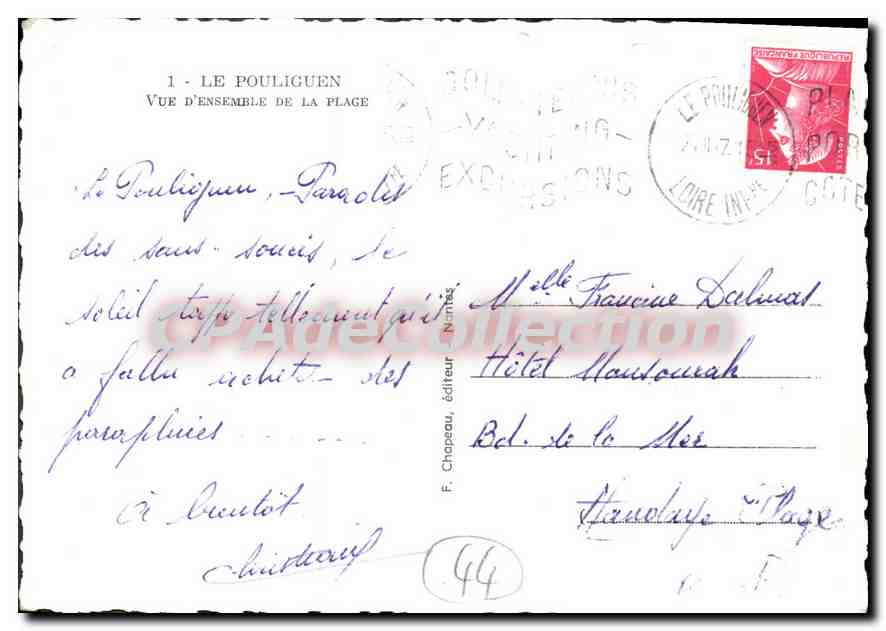 1 - LE POULIGUEN
VUE D'ENSEMBLE DE LA PLAGE
Le Pouliguen, - Paradis
des sans-soucis, le
soleil tappe tellement qu'il
a fallu achet- des
parapluies . . . . .
à bientôt
F. Chapeau, éditeur - Nantes
YACHTING
EXCURSIONS
LE POULIGUEN
LOIRE INFRE
REPUBLIQUE FRANÇAISE
15F
POSTES
COTE
Melle Francine Dalmas
Hôtel Mansourah
Bd. de la Mer
Hendaye Plage
44
CPAdeCollection